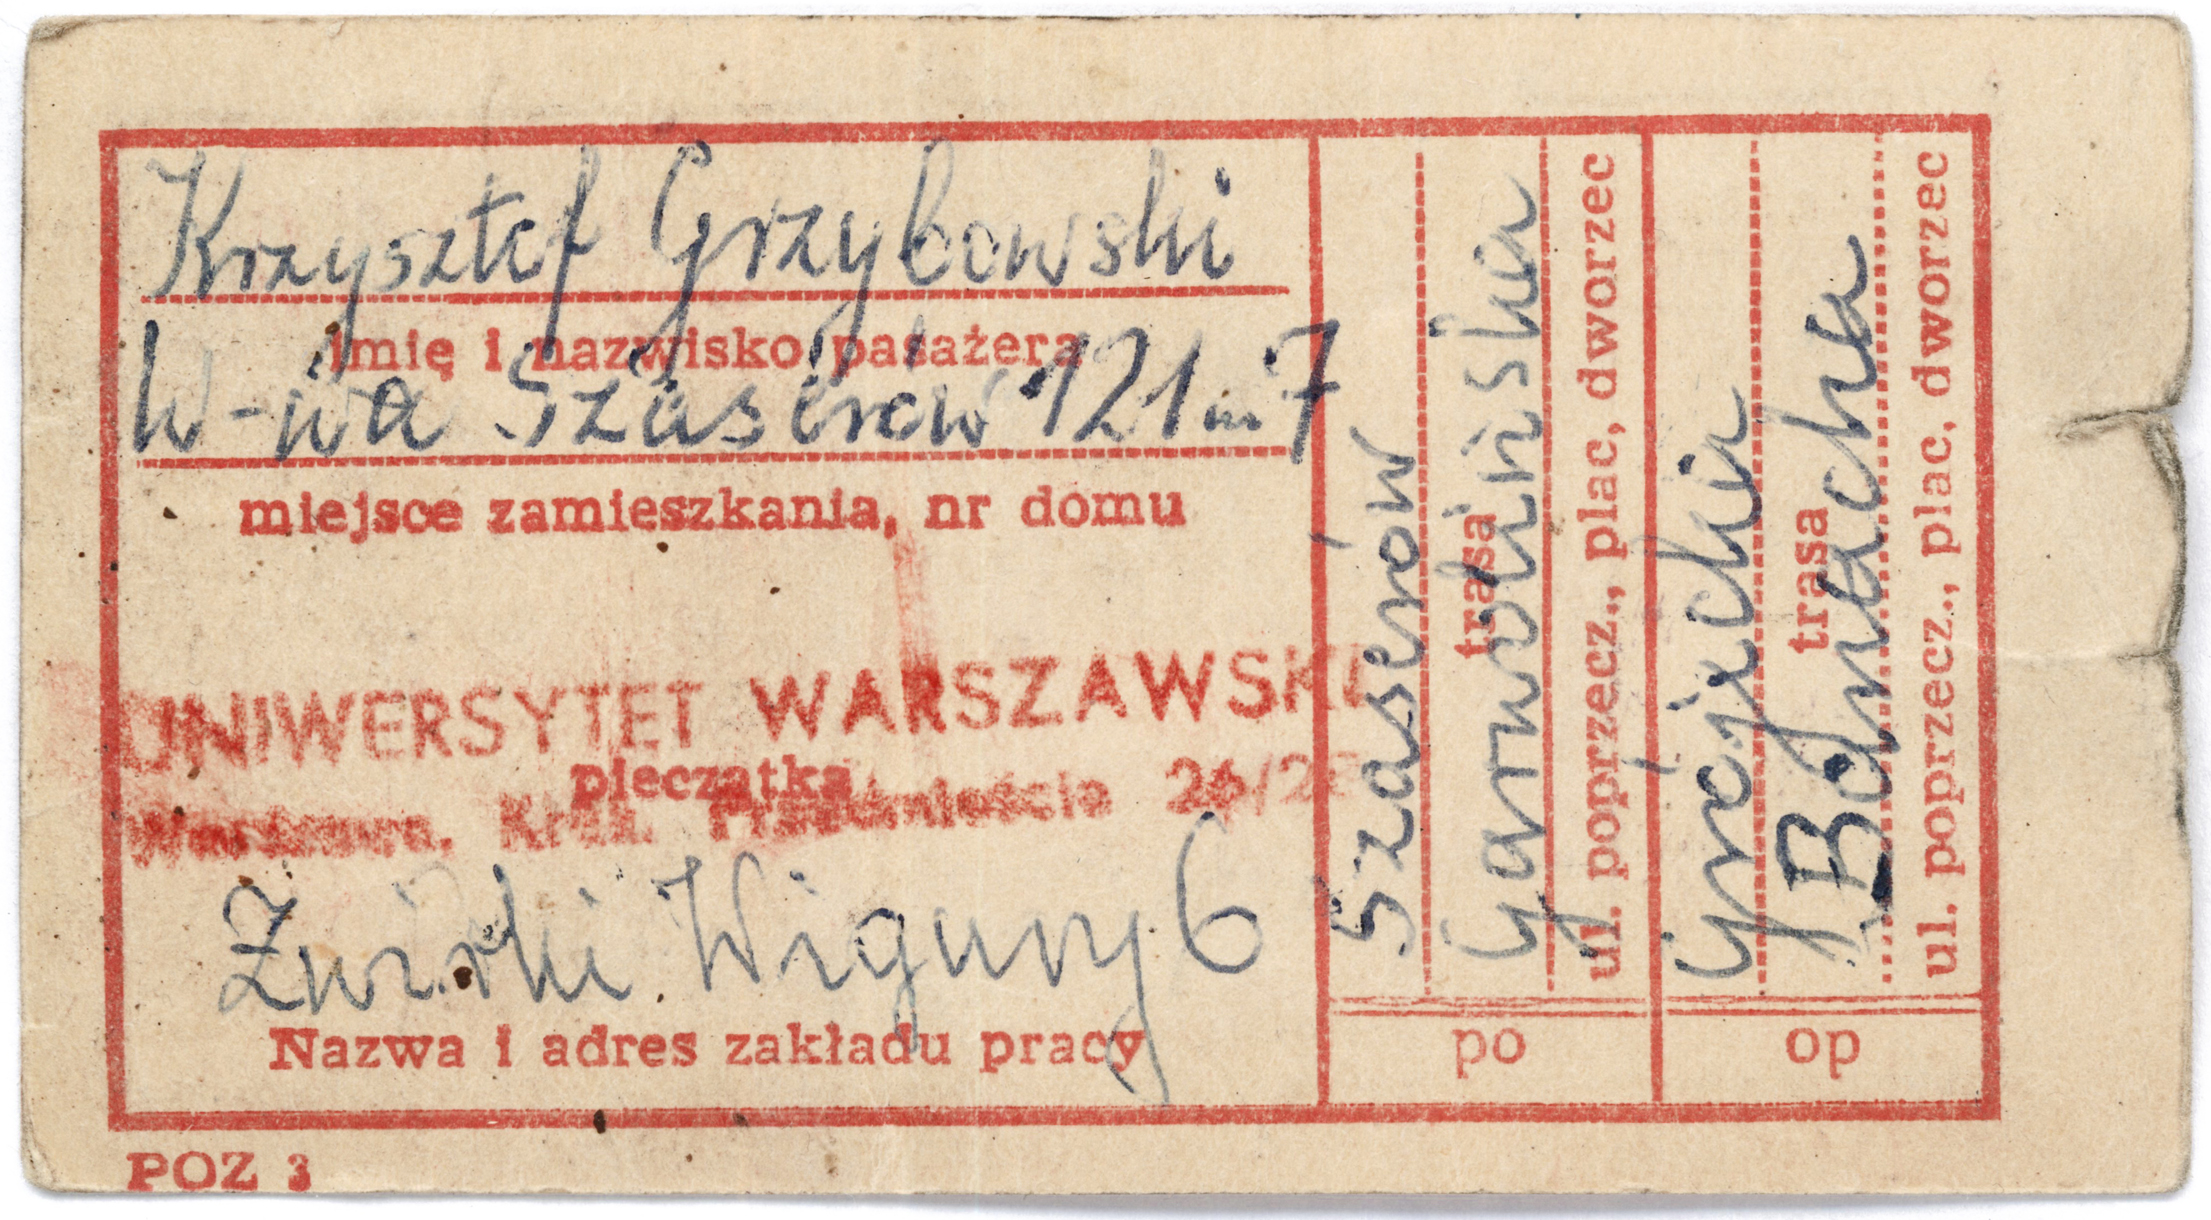 Krzysztof Grzybowski
imię i nazwisko pasażera
W-wa Szaserów 121 m 7
miejsce zamieszkania, nr domu
UNIWERSYTET WARSZAWSKI
pieczątka
Warszawa, Krak. Przedmieście 26/28
Żwirki Wigury 6
Nazwa i adres zakładu pracy
POZ 3
Szaserów
trasa
Garwolińska
ul. poprzecz., plac, dworzec
od
Grójecka
trasa
Banacha
ul. poprzecz., plac, dworzec
do